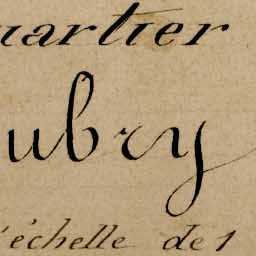 uartier
ubry
'échelle de 1